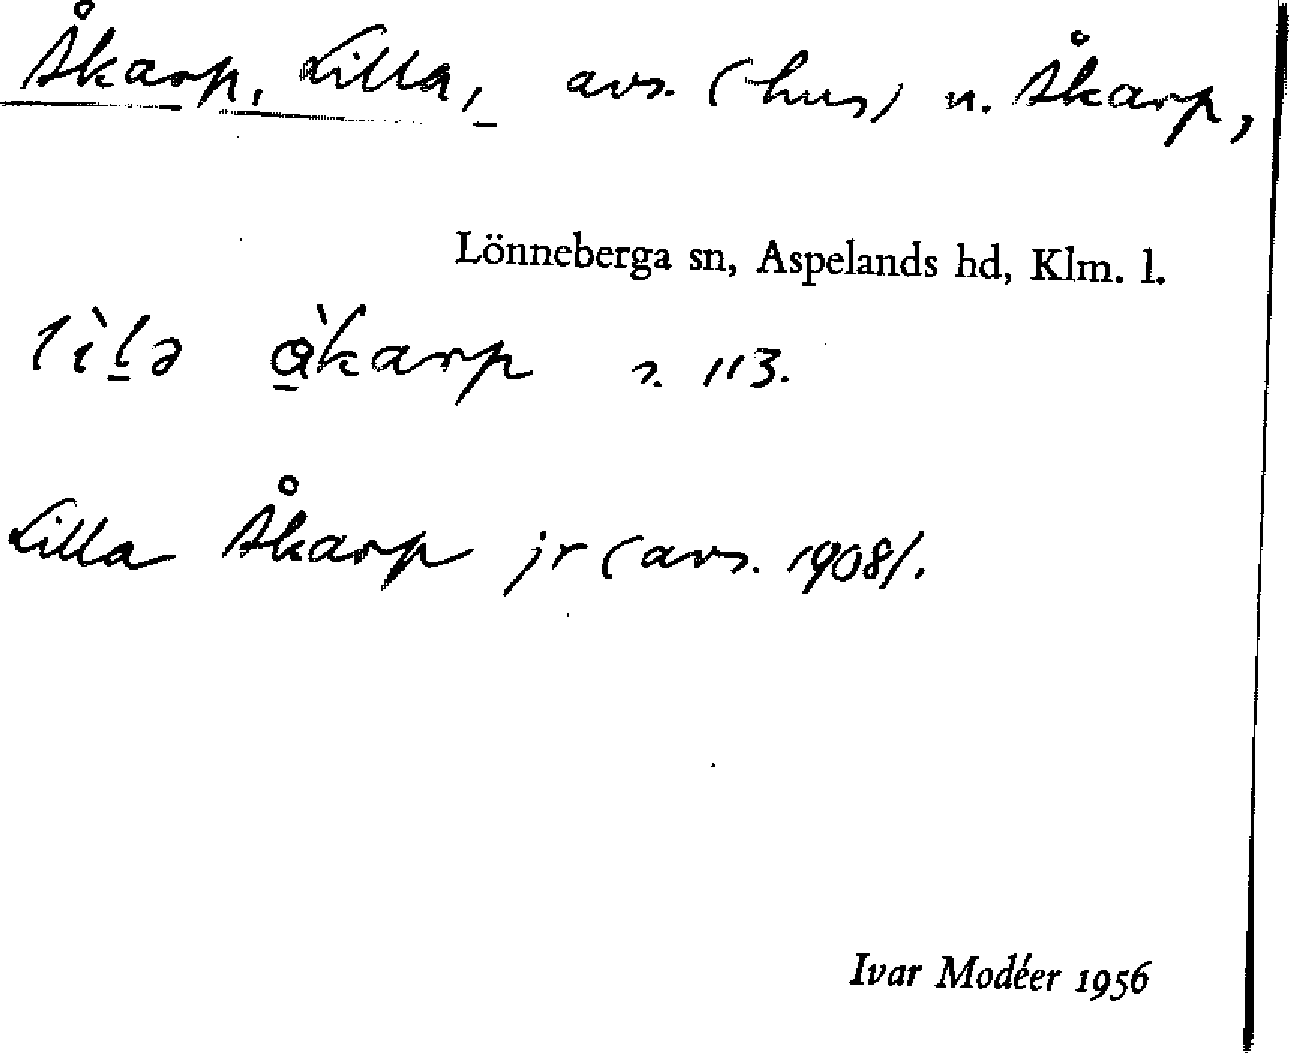 Åkarp, Lilla, avs. (hus) u. Åkarp,
Lönneberga sn, Aspelands hd, Klm. l.
lìlə åkarp s. 113.
Lilla Åkarp jr (avs. 1908).
Ivar Modéer 1956